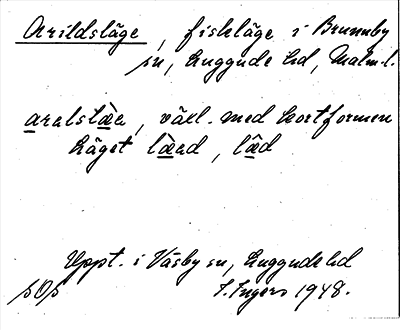 Arildsläge, fiskläge i Brunnby
sn, Luggude hd, Malm.l.
aralslæa, växl. med kortformen
Läget læad, læd
Uppt. i Väsby sn, Luggude hd
sOs I. Ingers 1948.